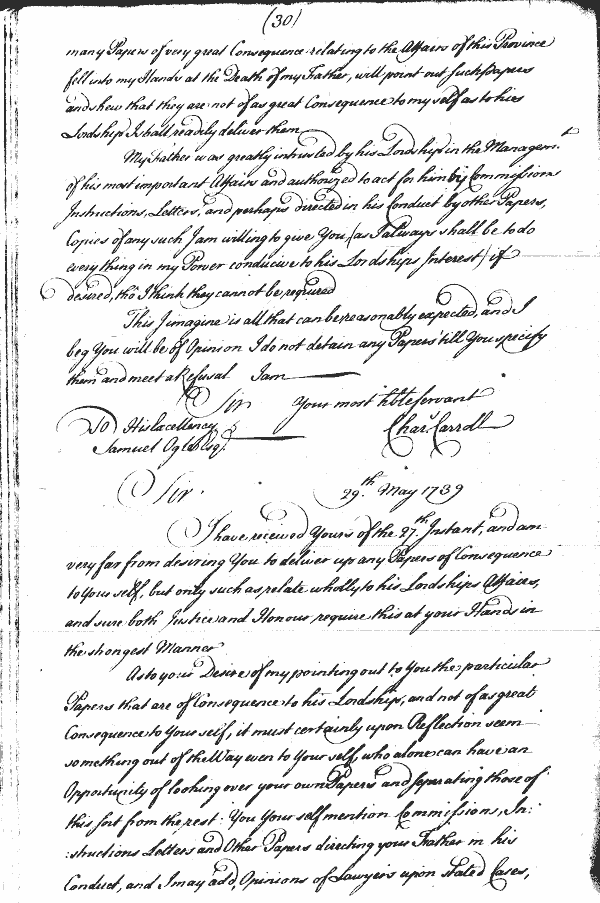 (30)
many Papers of very great Consequence relating to the Affairs of this Province
fell into my Hands at the Death of my Father, will point out such Papers
and shew that they are not of as great Consequence to my self as to his
Lordship I shall readily deliver them
My Father was greatly intrusted by his Lordship in the Managemt
of his most important Affairs and authorized to act for him by Commissions
Instructions, Letters, and perhaps directed in his Conduct by other Papers,
Copies of any such I am willing to give You, (as I always shall be to do
every thing in my Power conducive to his Lordships Interest) if
desired, tho' I think they cannot be required
This I imagine is all that can be reasonably expected, and I
beg You will be of Opinion I do not detain any Papers till You specify
them and meet a Refusal I am
Sir Your most hble servant
To His Excellency Chars. Carroll
Samuel Ogle Esqr.
Sir. 29th. May 1739
I have received Yours of the 27th. Instant, and am
very far from desiring You to deliver up any Papers of Consequence
to Your self, but only such as relate wholly to his Lordships Affairs,
and sure both Justice and Honour require this at your Hands in
the strongest Manner
As to your Desire of my pointing out to You the particular
Papers that are of Consequence to his Lordship, and not of as great
Consequence to Your self, it must certainly upon Reflection seem
something out of the Way even to Your self, who alone can have an
Opportunity of looking over your own Papers and separating those of
this sort from the rest: You Your self mention Commissions, In:
:structions Letters and Other Papers directing your Father in his
Conduct, and I may add, Opinions of Lawyers upon stated Cases,